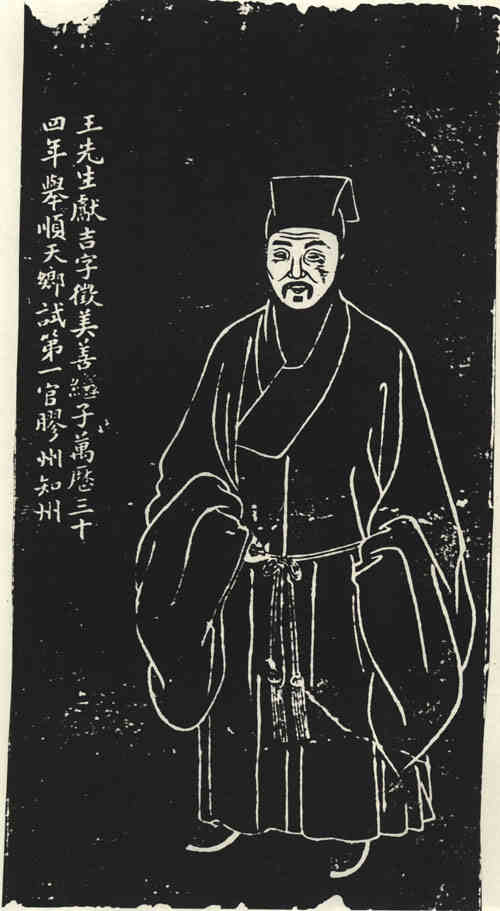 王先生獻吉字徵美善繼子萬歷三十
四年舉順天鄉試第一官膠州知州